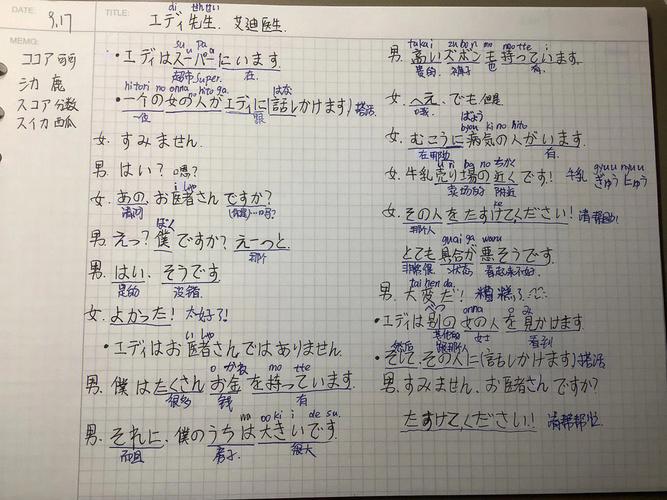 9.17
TITLE:
di thtii
エディ先生. 艾迪医生.
MEMO:
ココア 可可
シカ 鹿
スコア 分数
スイカ 西瓜
su pa
・エディはスーパーにいます.
超市 super. 在.
hitori no onna no hito ga. はな
・一个の女の人がエディに(話しかけます) 搭话.
一位 跟
女. すみません.
男. はい? 嗯?
i sya
女. あの、お医者さん ですか?
请问 吗?
ぼく
男. えっ? 僕ですか? えーっと.
那个
男. はい、そうです.
是的 没错.
女. よかった! 太好了!
i sya
・エディはお医者さんではありません.
o かね mo tte
男. 僕はたくさんお金を持っています.
很多 钱 有
oo ki i de su.
男. それに、僕のうちは大きいです.
而且 房子 很大
takai zubon mo mo tte i
男. 高いズボンも持っています.
贵的 裤子 也 有.
女. へえ、でも 但是
哦.
びょう
byou ki no hito
女. むこうに病気の人がいます.
在那边 有.
u ri ba no ちかく
女. 牛乳売り場の近くです! 牛乳 gyuu nyuu
卖场的 附近 ぎゅう にゅう
女. その人をたすけてください! 请帮助!
那个人
guai ga waru
とても具合が悪そうです.
非常很 状态 看起来不好.
tai hen da.
男. 大変だ! 糟糕了.
べつ onna み
・エディは別の女の人を見かけます.
其他的 女士 看到
・そして、その人に(話しかけます) 搭话
然后 跟那个人
男. すみません、お医者さんですか?
たすけてください! 请帮帮忙.